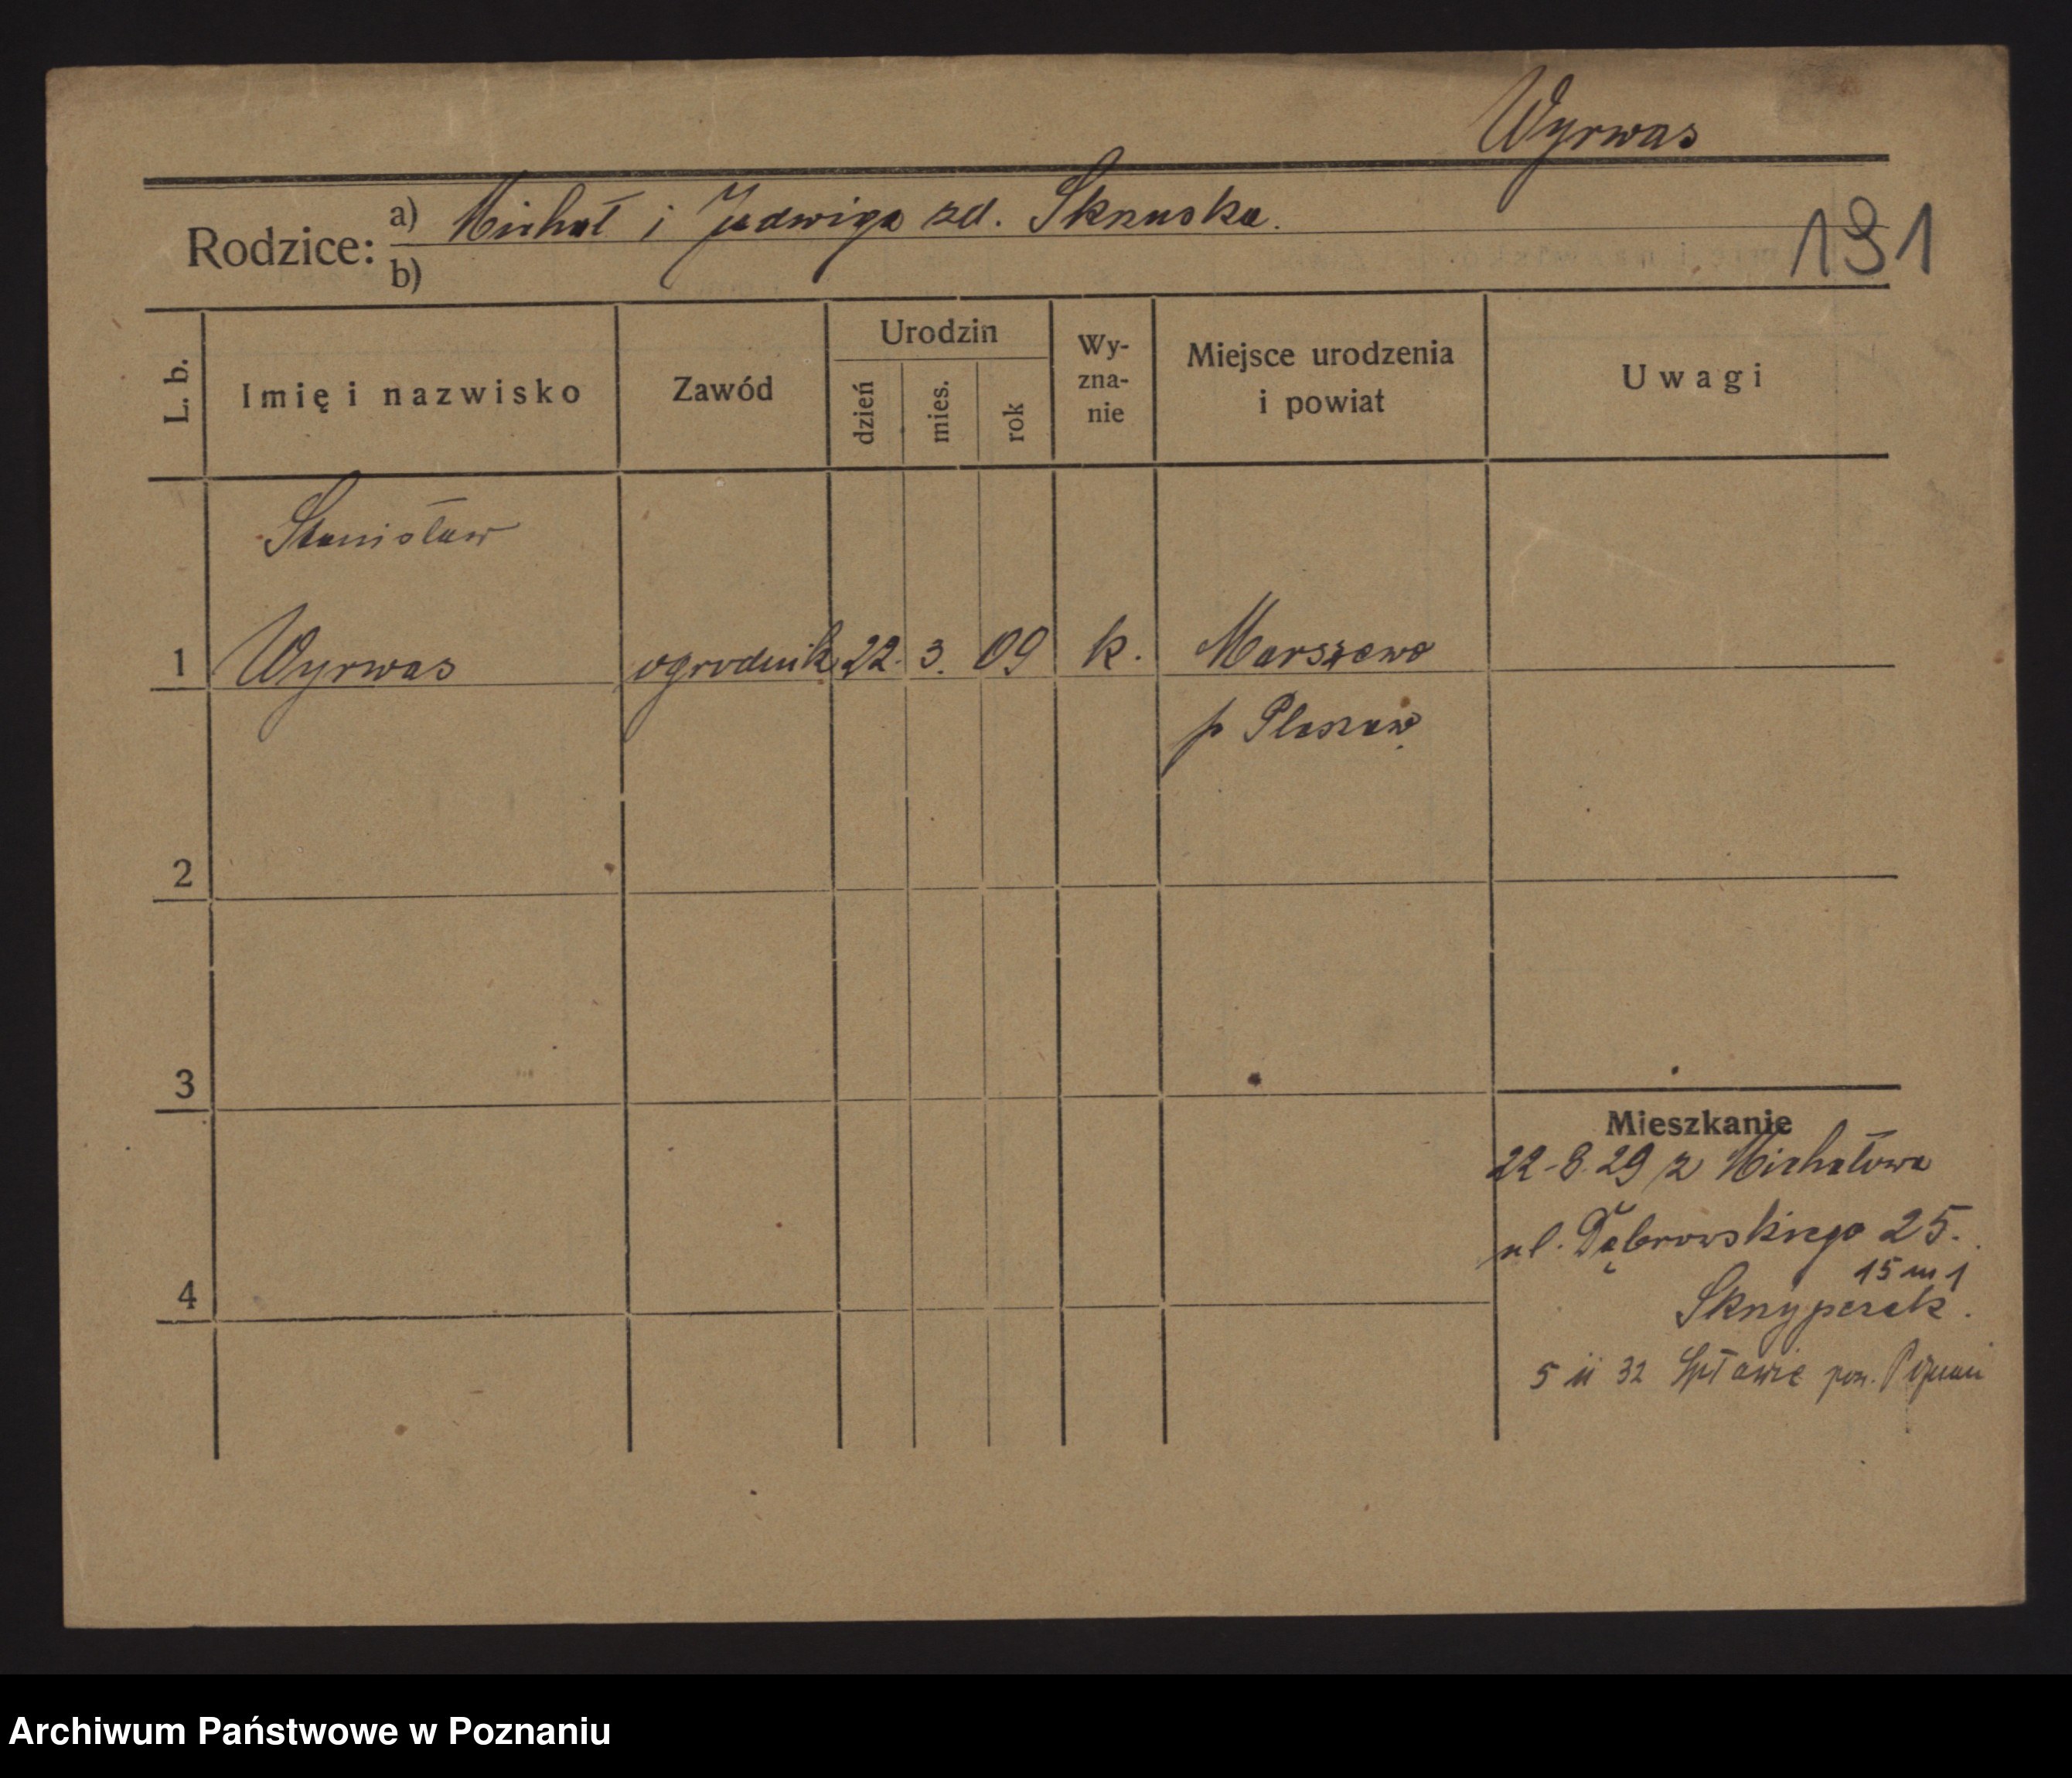 Wyrwas
Rodzice: a) Michał i Jadwiga zd. Skruska.
b)
191
L. b.
Imię i nazwisko
Zawód
Urodzin
dzień
mies.
rok
Wy-
zna-
nie
Miejsce urodzenia
i powiat
Uwagi
Stanisław
1 Wyrwas ogrodnik 22. 3. 09 k. Marszewo
p Pleszew
2
3
4
Mieszkanie
22-8.29 z Michałowa
ul. Dąbrowskiego 25.
15 m 1
Sknypczak.
5 II 32 Spławie pow. Poznań
Archiwum Państwowe w Poznaniu